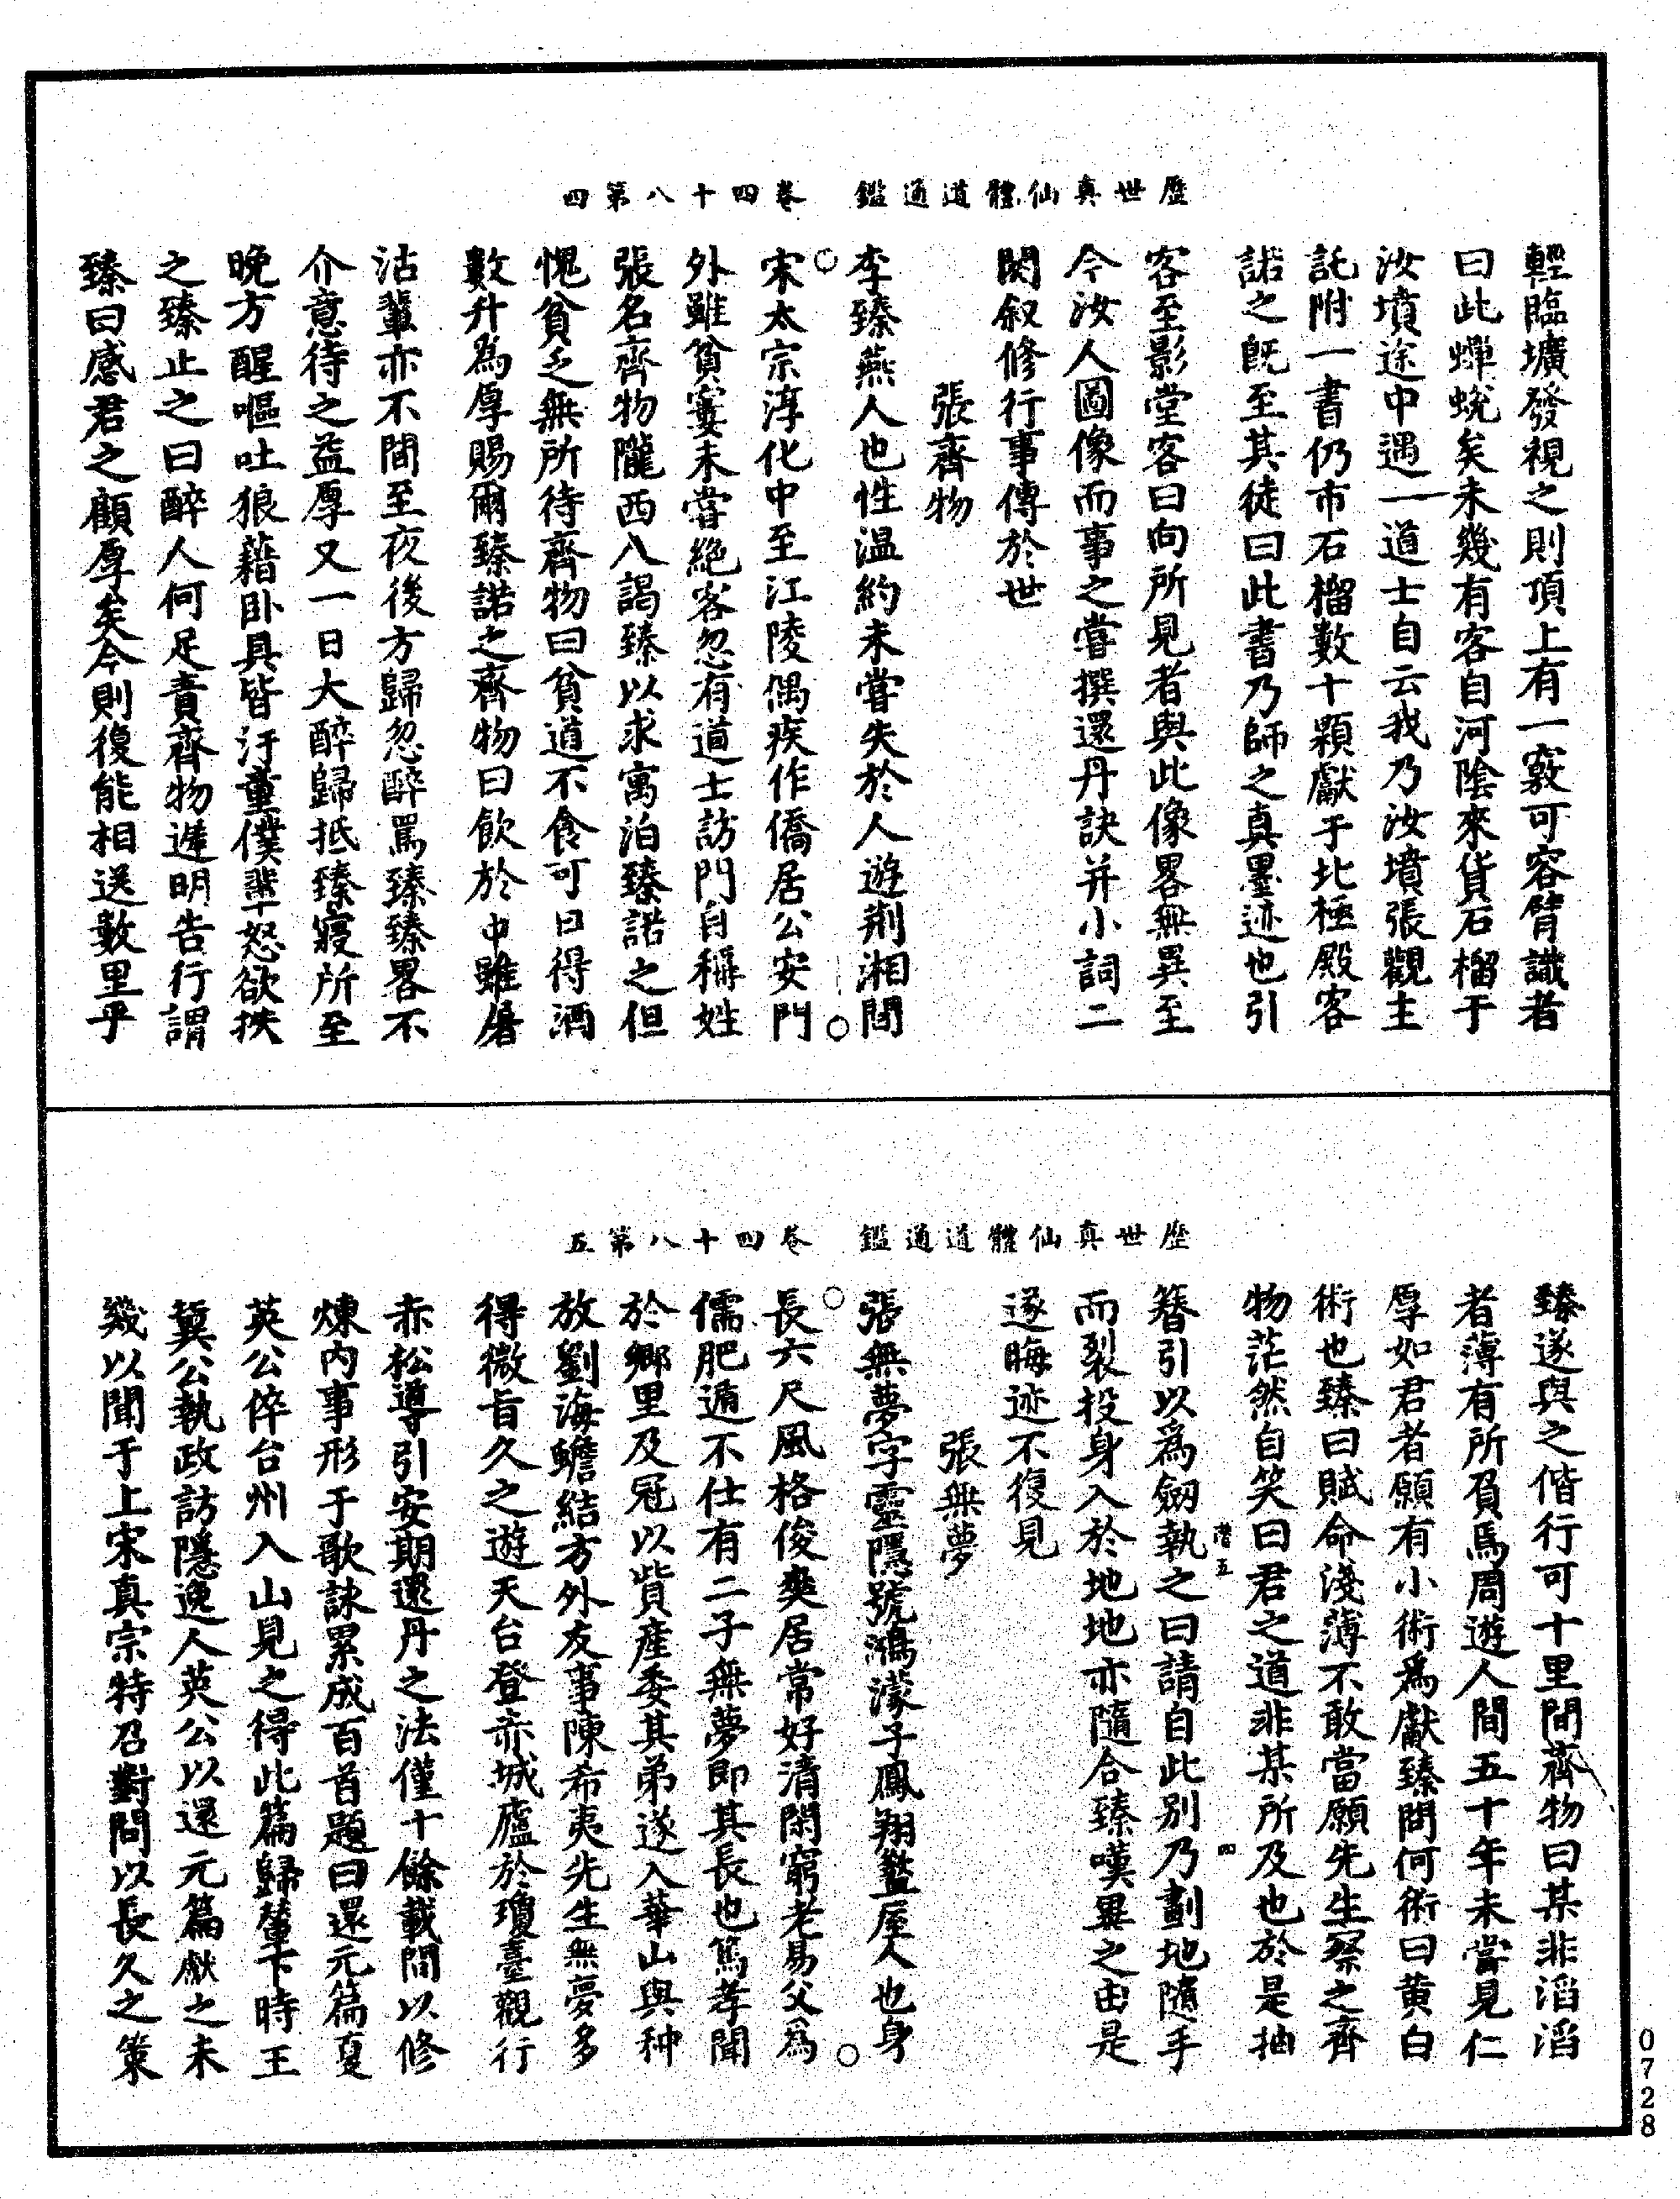 歷世真仙體道通鑑　卷四十八第四
輕臨壙發視之則頂上有一竅可容臂識者
曰此蟬蛻矣未幾有客自河陰來貨石榴于
汝墳途中遇一道士自云我乃汝墳張觀主
託附一書仍市石榴數十顆獻于北極殿客
諾之既至其徒曰此書乃師之真墨迹也引
客至影堂客曰向所見者與此像畧無異至
今汝人圖像而事之嘗撰還丹訣并小詞二
闋叙修行事傳於世
張齊物
李臻燕人也性温約未嘗失於人遊荆湘間
宋太宗淳化中至江陵偶疾作僑居公安門
外雖貧窶未嘗絕客忽有道士訪門自稱姓
張名齊物隴西人謁臻以求寓泊臻諾之但
愧貧乏無所待齊物曰貧道不食可日得酒
數升為厚賜爾臻諾之齊物曰飲於中雖屠
沽輩亦不間至夜後方歸忽醉罵臻臻畧不
介意待之益厚又一日大醉歸抵臻寢所至
晚方醒嘔吐狼藉卧具皆汙童僕輩怒欲抶
之臻止之曰醉人何足責齊物遲明告行謂
臻曰感君之顧厚矣今則復能相送數里乎
歷世真仙體道通鑑　卷四十八第五
臻遂與之偕行可十里間齊物曰某非滔滔
者薄有所負焉周遊人間五十年未嘗見仁
厚如君者願有小術爲獻臻問何術曰黄白
術也臻曰賦命淺薄不敢當願先生察之齊
物茫然自笑曰君之道非某所及也於是抽
簪引以爲劒執之曰請自此别乃劃地隨手
而裂投身入於地地亦隨合臻嘆異之由是
遂晦迹不復見
張無夢
張無夢字靈隱號鴻濛子鳳翔盩厔人也身
長六尺風格俊爽居常好清閑窮老易父為
儒肥遁不仕有二子無夢即其長也篤孝聞
於鄉里及冠以貲產委其弟遂入華山與种
放劉海蟾結方外友事陳希夷先生無夢多
得微旨久之遊天台登赤城廬於瓊臺觀行
赤松導引安期還丹之法僅十餘載間以修
煉内事形于歌詠累成百首題曰還元篇夏
英公倅台州入山見之得此篇歸輦下時王
冀公執政訪隱逸人英公以還元篇獻之未
幾以聞于上宋真宗特召對問以長久之策
0728